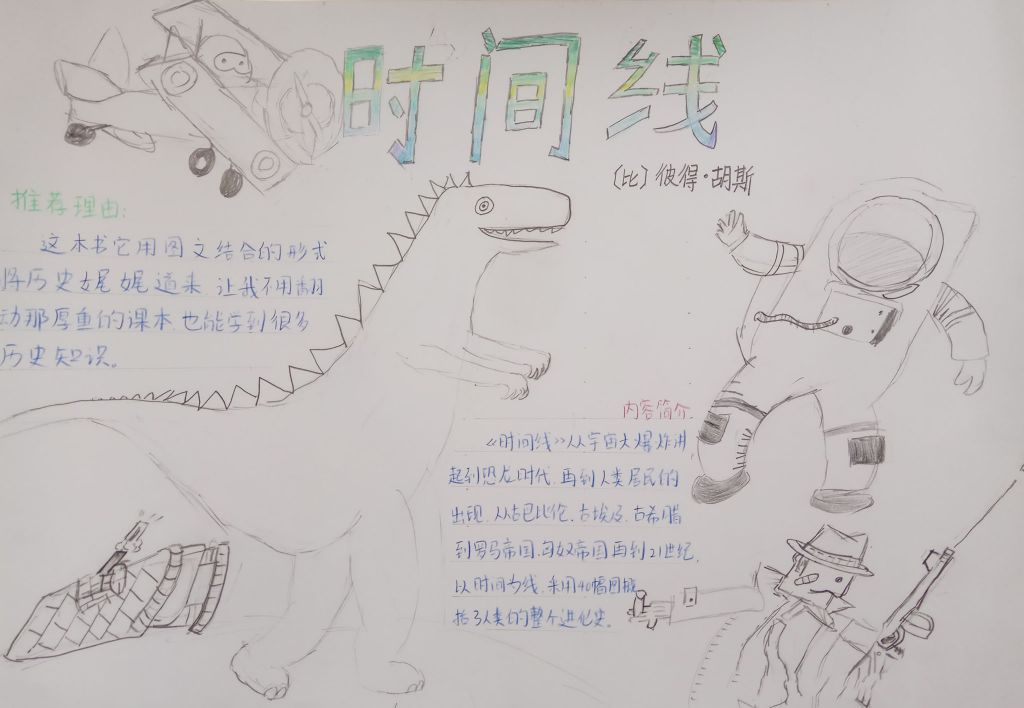 时间线
〔比〕彼得·胡斯
推荐理由:
这本书它用图文结合的形式
将历史娓娓道来.让我不用翻
动那厚重的课本.也能学到很多
历史知识。
内容简介.
《时间线》从宇宙大爆炸讲
起到恐龙时代.再到人类居民的
出现.从古巴比伦.古埃及.古希腊
到罗马帝国.匈奴帝国再到21世纪.
以时间为线.采用40幅图概
括了人类的整个进化史.